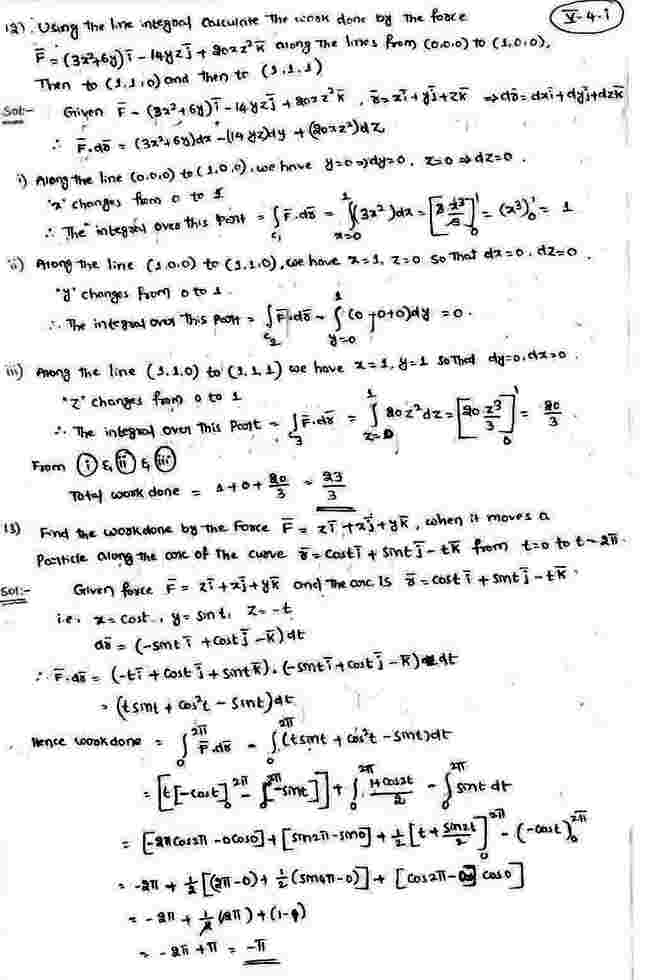 12) Using the line integral calculate the work done by the force
V-4-1
F̄ = (3x²+6y)ī - 14yzj̄ + 20xz²k̄ along the lines from (0,0,0) to (1,0,0),
Then to (1,1,0) and then to (1,1,1)
Sol:- Given F̄ - (3x²+6y)ī - 14yzj̄ + 20xz²k̄, r̄ = xī + yj̄ + zk̄ ⇒ dr̄ = dxī + dyj̄ + dzk̄
∴ F̄.dr̄ = (3x²+6y)dx - (14yz)dy + (20xz²)dz,
i) Along the line (0,0,0) to (1,0,0), we have y=0 ⇒ dy=0, z=0 ⇒ dz=0.
"x" changes from 0 to 1
∴ The integral over this part = ∫c₁ F̄.dr̄ = ∫_{x=0}^{1} (3x²)dx = [3 x³/3]₀¹ = (x³)₀¹ = 1
ii) Along the line (1,0,0) to (1,1,0), we have x=1, z=0 so that dx=0, dz=0.
"y" changes from 0 to 1.
∴ The integral over this part = ∫c₂ F̄.dr̄ = ∫_{y=0}^{1} (0-0+0)dy = 0.
iii) Along the line (1,1,0) to (1,1,1) we have x=1, y=1 so that dy=0, dx=0.
"z" changes from 0 to 1
∴ The integral over this part = ∫c₃ F̄.dr̄ = ∫_{z=0}^{1} 20z²dz = [20 z³/3]₀¹ = 20/3.
From (i) & (ii) & (iii)
Total work done = 1+0+20/3 = 23/3
13) Find the workdone by the Force F̄ = zī + xj̄ + yk̄, when it moves a
Particle along the arc of the curve r̄ = costī + sintj̄ - tk̄ from t=0 to t=2π.
Sol:- Given force F̄ = zī + xj̄ + yk̄ and the arc is r̄ = costī + sintj̄ - tk̄.
i.e., x=cost, y=sint, z=-t
dr̄ = (-sintī + costj̄ - k̄)dt
∴ F̄.dr̄ = (-tī + costj̄ + sintk̄).(-sintī + costj̄ - k̄)dt
= (tsint + cos²t - sint)dt
Hence workdone = ∫₀^{2π} F̄.dr̄ = ∫₀^{2π} (tsint + cos²t - sint)dt
= [t[-cost]₀^{2π} - ∫₀^{2π}[-sint]] + ∫₀^{2π} (1+cos2t)/2 - ∫₀^{2π} sint dt
= [-2πcos2π - 0cos0] + [sin2π - sin0] + ½[t + sin2t/2]₀^{2π} - (-cost)₀^{2π}
= -2π + ½[(2π-0) + ½(sin4π-0)] + [cos2π - cos0]
= -2π + ½(2π) + (1-1)
= -2π + π = -π